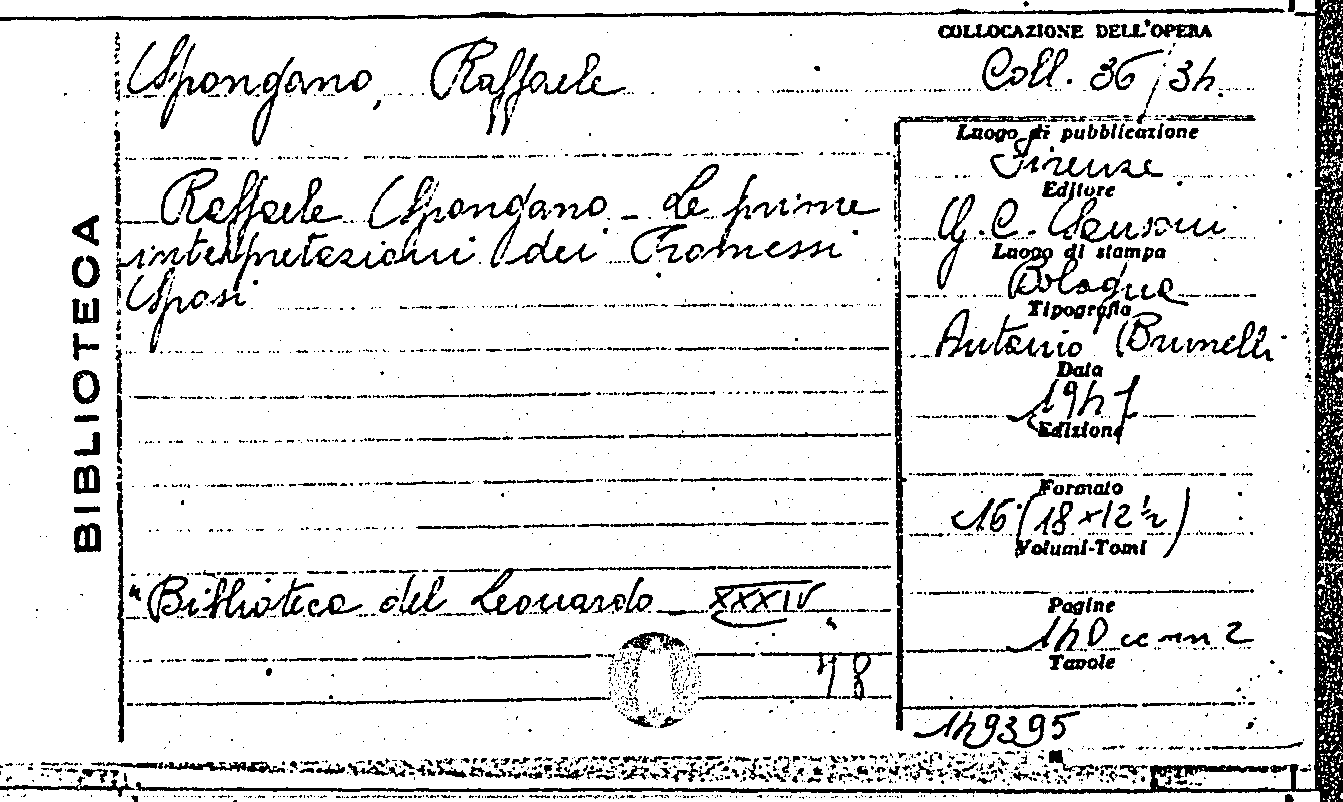 BIBLIOTECA
Spongano, Raffaele
Raffaele Spongano - Le prime
interpretazioni dei Promessi
Sposi
"Biblioteca del Leonardo - XXXIV"
48
COLLOCAZIONE DELL'OPERA
Coll. 36/34.
Luogo di pubblicazione
Firenze
Editore
G. C. Sansoni
Luogo di stampa
Bologna
Tipografia
Antonio Brunelli
Data
1947
Edizione
Formato
16° (18×12½)
Volumi-Tomi
Pagine
140 cc nn 2
Tavole
149395